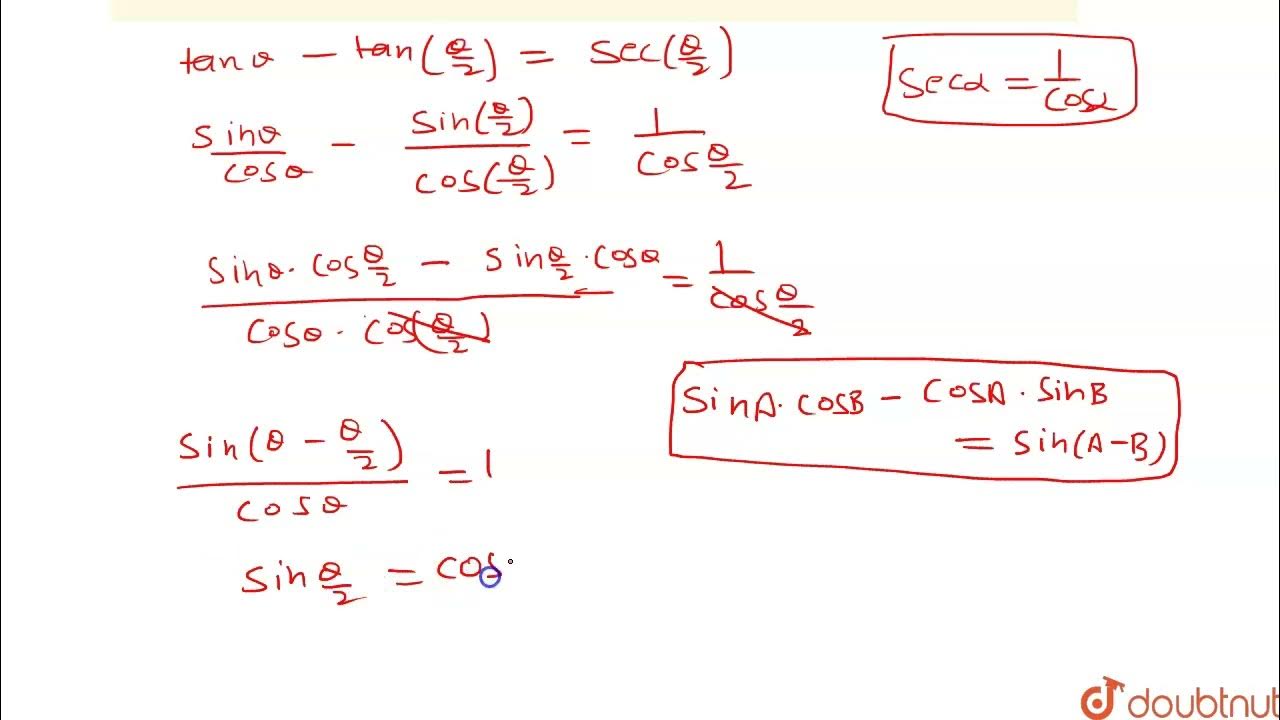 tanθ − tan(θ/2) = sec(θ/2)
secα = 1/cosα
sinθ/cosθ − sin(θ/2)/cos(θ/2) = 1/cos θ/2
(sinθ · cos θ/2 − sin θ/2 · cosθ)/(cosθ · cos(θ/2)) = 1/cos θ/2
sinA · cosB − cosA · sinB
= sin(A−B)
sin(θ − θ/2)/cosθ = 1
sin θ/2 = cos
doubtnut